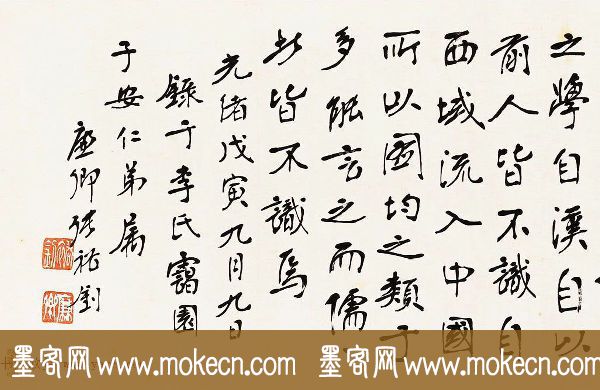 之學自漢自以
前人皆不識自
西域流入中國
所以圖均之類
多能言之而儒
皆不識焉
光緒戊寅九月九日
錄于李氏靄園
子安仁弟屬
廉卿張裕釗
墨客网 www.mokecn.com 墨客网 www.mokecn.com